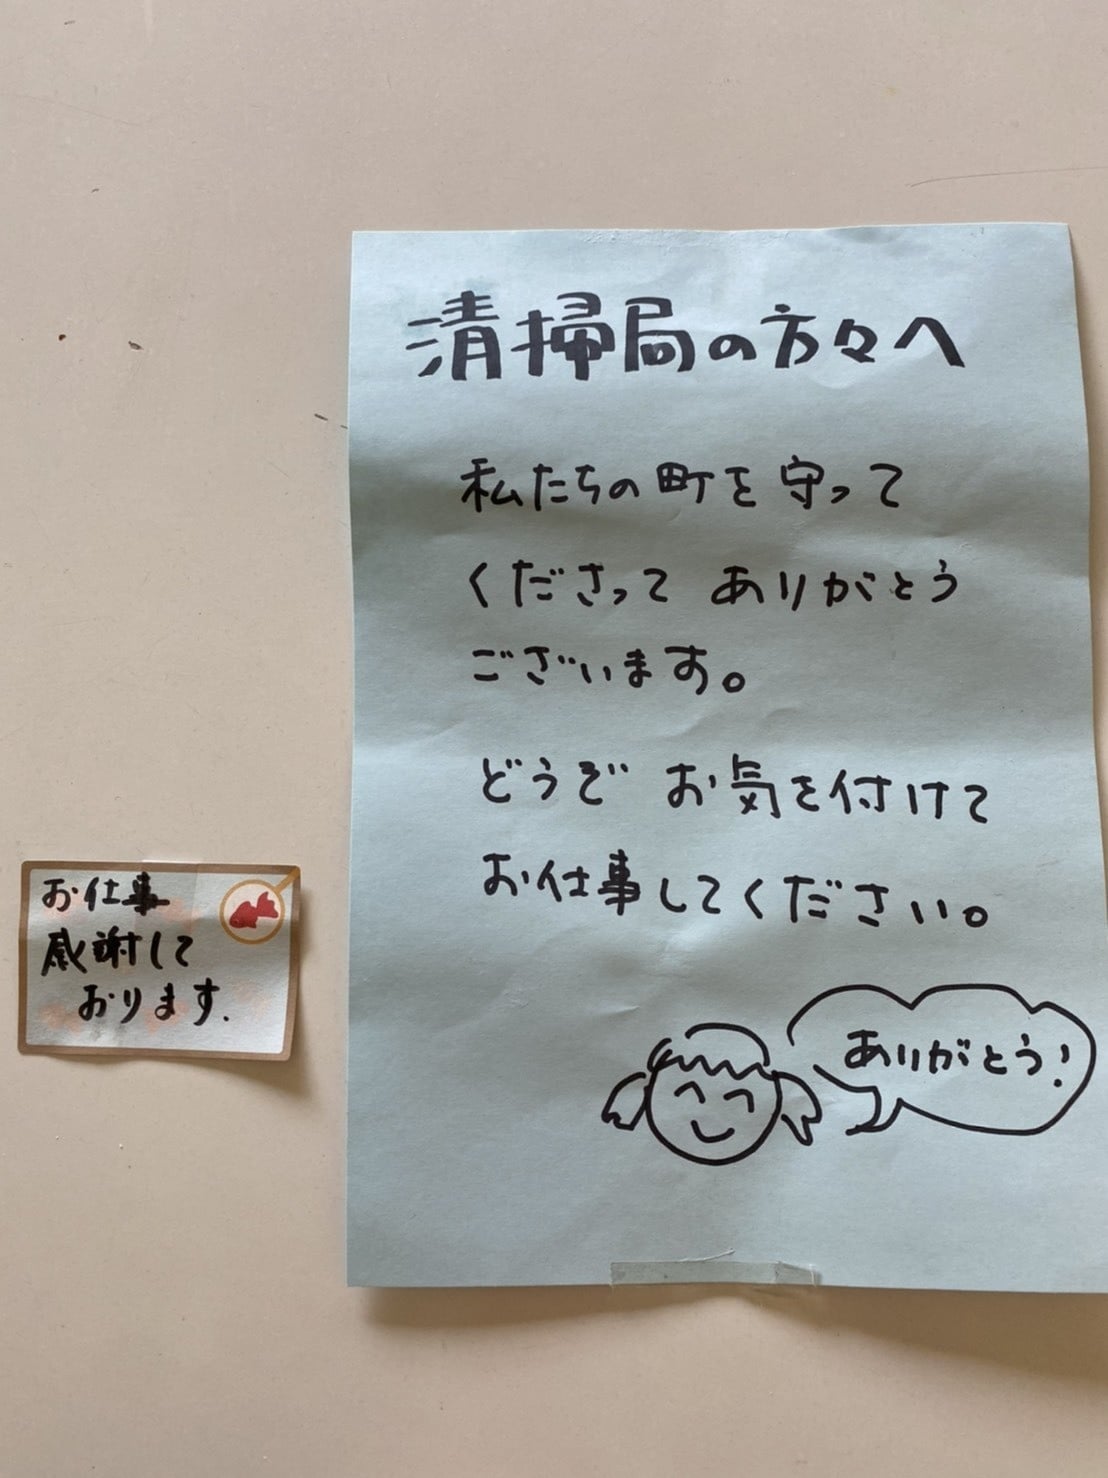 清掃局の方々へ
私たちの町を守って
くださって ありがとう
ございます。
どうぞ お気を付けて
お仕事してください。
ありがとう!
お仕事
感謝して
おります.